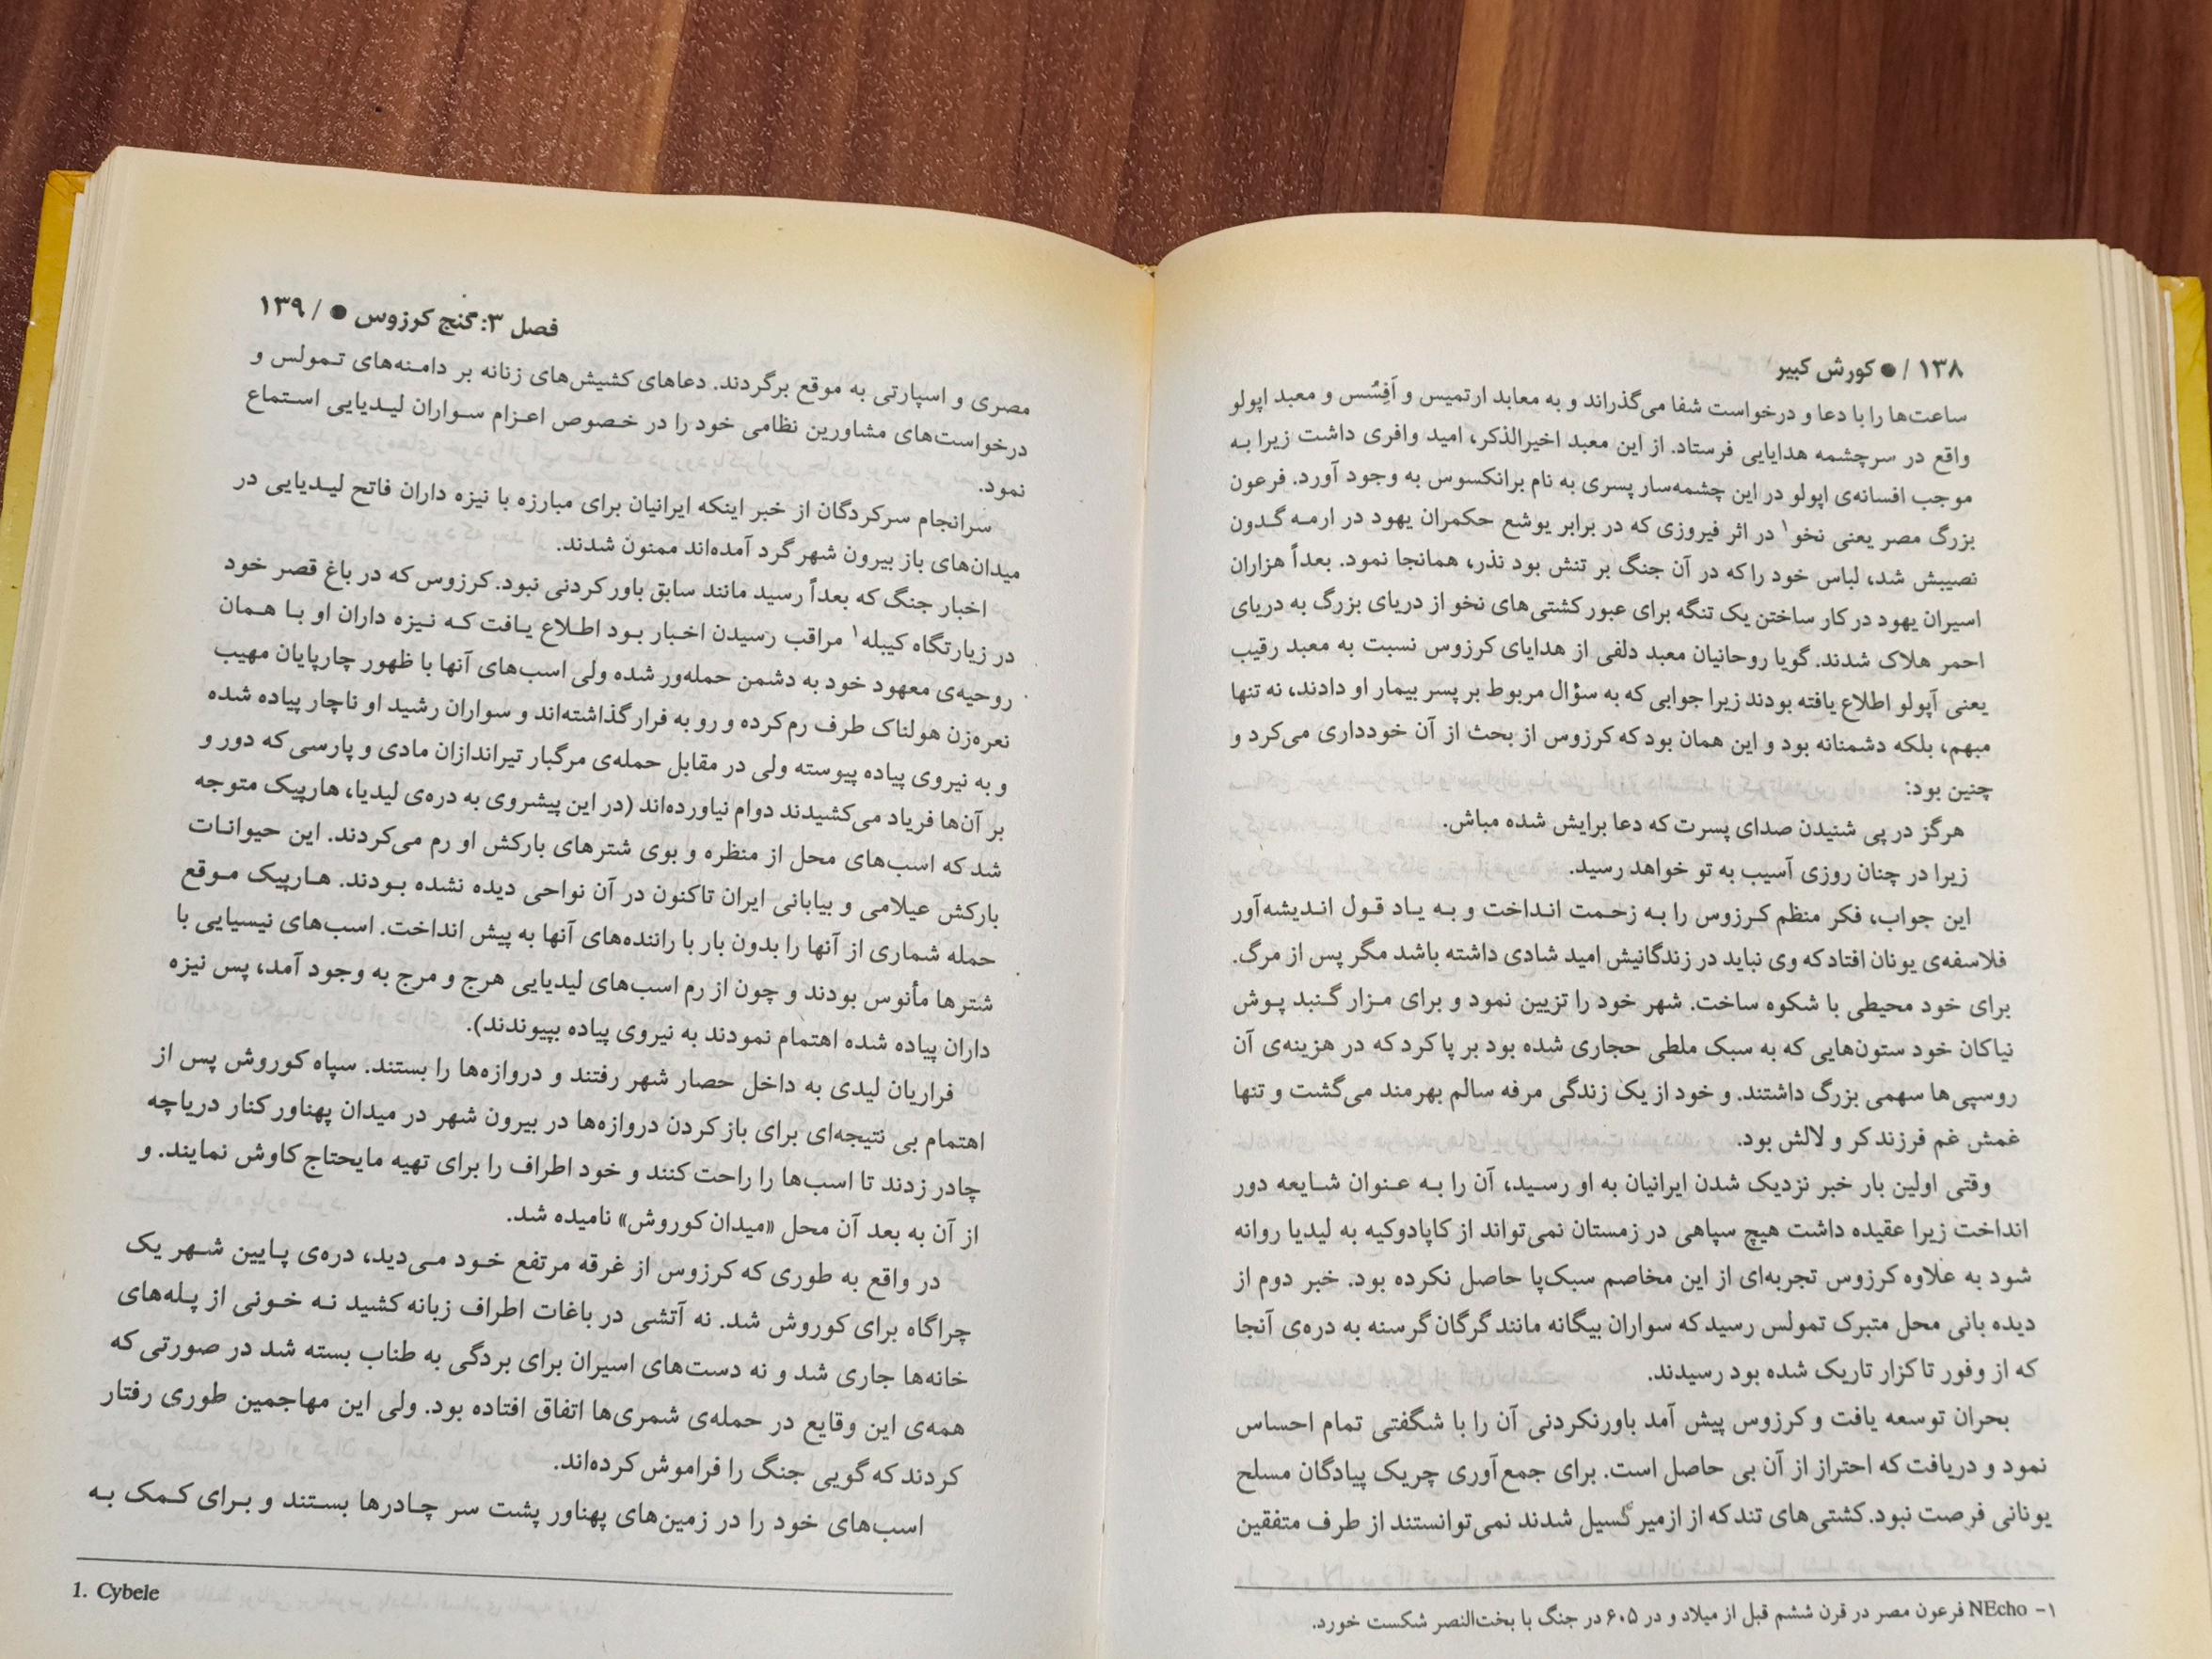 ۱۳۸ / ● کورش کبیر
ساعت‌ها را با دعا و درخواست شفا می‌گذراند و به معابد ارتمیس و اَفِسُس و معبد اپولو
واقع در سرچشمه هدایایی فرستاد. از این معبد اخیرالذکر، امید وافری داشت زیرا به
موجب افسانه‌ی اپولو در این چشمه‌سار پسری به نام برانکسوس به وجود آورد. فرعون
بزرگ مصر یعنی نخو۱ در اثر فیروزی که در برابر یوشع حکمران یهود در ارمه گدون
نصیبش شد، لباس خود را که در آن جنگ بر تنش بود نذر، همانجا نمود. بعداً هزاران
اسیران یهود در کار ساختن یک تنگه برای عبور کشتی‌های نخو از دریای بزرگ به دریای
احمر هلاک شدند. گویا روحانیان معبد دلفی از هدایای کرزوس نسبت به معبد رقیب
یعنی آپولو اطلاع یافته بودند زیرا جوابی که به سؤال مربوط بر پسر بیمار او دادند، نه تنها
مبهم، بلکه دشمنانه بود و این همان بود که کرزوس از بحث از آن خودداری می‌کرد و
چنین بود:
هرگز در پی شنیدن صدای پسرت که دعا برایش شده مباش.
زیرا در چنان روزی آسیب به تو خواهد رسید.
این جواب، فکر منظم کرزوس را به زحمت انداخت و به یاد قول اندیشه‌آور
فلاسفه‌ی یونان افتاد که وی نباید در زندگانیش امید شادی داشته باشد مگر پس از مرگ.
برای خود محیطی با شکوه ساخت. شهر خود را تزیین نمود و برای مزار گنبد پوش
نیاکان خود ستون‌هایی که به سبک ملطی حجاری شده بود بر پا کرد که در هزینه‌ی آن
روسپی‌ها سهمی بزرگ داشتند. و خود از یک زندگی مرفه سالم بهرمند می‌گشت و تنها
غمش غم فرزند کر و لالش بود.
وقتی اولین بار خبر نزدیک شدن ایرانیان به او رسید، آن را به عنوان شایعه دور
انداخت زیرا عقیده داشت هیچ سپاهی در زمستان نمی‌تواند از کاپادوکیه به لیدیا روانه
شود به علاوه کرزوس تجربه‌ای از این مخاصم سبک‌پا حاصل نکرده بود. خبر دوم از
دیده بانی محل متبرک تمولس رسید که سواران بیگانه مانند گرگان گرسنه به دره‌ی آنجا
که از وفور تاکزار تاریک شده بود رسیدند.
بحران توسعه یافت و کرزوس پیش آمد باورنکردنی آن را با شگفتی تمام احساس
نمود و دریافت که احتراز از آن بی حاصل است. برای جمع‌آوری چریک پیادگان مسلح
یونانی فرصت نبود. کشتی‌های تند که از ازمیر گسیل شدند نمی‌توانستند از طرف متفقین
۱- NEcho فرعون مصر در قرن ششم قبل از میلاد و در ۶۰۵ در جنگ با بخت‌النصر شکست خورد.
فصل ۳: گنج کرزوس ● / ۱۳۹
مصری و اسپارتی به موقع برگردند. دعاهای کشیش‌های زنانه بر دامنه‌های تمولس و
درخواست‌های مشاورین نظامی خود را در خصوص اعزام سواران لیدیایی استماع
نمود.
سرانجام سرکردگان از خبر اینکه ایرانیان برای مبارزه با نیزه داران فاتح لیدیایی در
میدان‌های باز بیرون شهر گرد آمده‌اند ممنون شدند.
اخبار جنگ که بعداً رسید مانند سابق باور کردنی نبود. کرزوس که در باغ قصر خود
در زیارتگاه کیبله۱ مراقب رسیدن اخبار بود اطلاع یافت که نیزه داران او با همان
روحیه‌ی معهود خود به دشمن حمله‌ور شده ولی اسب‌های آنها با ظهور چارپایان مهیب
نعره‌زن هولناک طرف رم کرده و رو به فرار گذاشته‌اند و سواران رشید او ناچار پیاده شده
و به نیروی پیاده پیوسته ولی در مقابل حمله‌ی مرگبار تیراندازان مادی و پارسی که دور و
بر آن‌ها فریاد می‌کشیدند دوام نیاورده‌اند (در این پیشروی به دره‌ی لیدیا، هارپیک متوجه
شد که اسب‌های محل از منظره و بوی شترهای بارکش او رم می‌کردند. این حیوانات
بارکش عیلامی و بیابانی ایران تاکنون در آن نواحی دیده نشده بودند. هارپیک موقع
حمله شماری از آنها را بدون بار با راننده‌های آنها به پیش انداخت. اسب‌های نیسیایی با
شترها مأنوس بودند و چون از رم اسب‌های لیدیایی هرج و مرج به وجود آمد، پس نیزه
داران پیاده شده اهتمام نمودند به نیروی پیاده بپیوندند).
فراریان لیدی به داخل حصار شهر رفتند و دروازه‌ها را بستند. سپاه کوروش پس از
اهتمام بی نتیجه‌ای برای باز کردن دروازه‌ها در بیرون شهر در میدان پهناور کنار دریاچه
چادر زدند تا اسب‌ها را راحت کنند و خود اطراف را برای تهیه مایحتاج کاوش نمایند. و
از آن به بعد آن محل «میدان کوروش» نامیده شد.
در واقع به طوری که کرزوس از غرقه مرتفع خود می‌دید، دره‌ی پایین شهر یک
چراگاه برای کوروش شد. نه آتشی در باغات اطراف زبانه کشید نه خونی از پله‌های
خانه‌ها جاری شد و نه دست‌های اسیران برای بردگی به طناب بسته شد در صورتی که
همه‌ی این وقایع در حمله‌ی شمری‌ها اتفاق افتاده بود. ولی این مهاجمین طوری رفتار
کردند که گویی جنگ را فراموش کرده‌اند.
اسب‌های خود را در زمین‌های پهناور پشت سر چادرها بستند و برای کمک به
1. Cybele